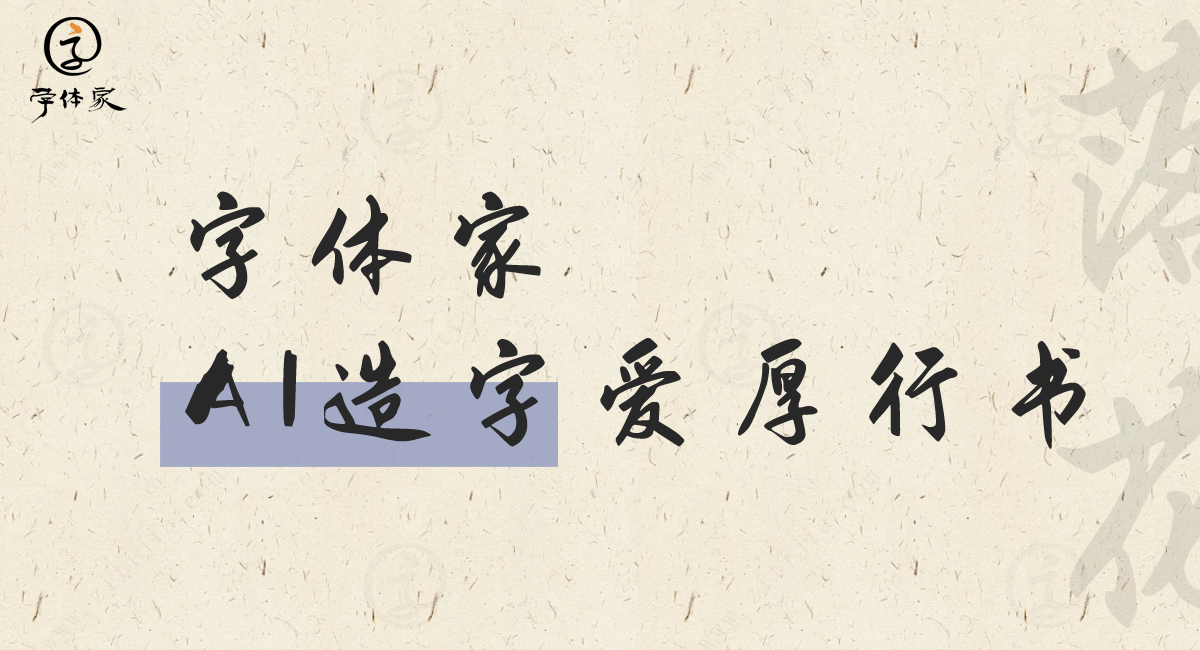 字
字体家
字体家
AI造字爱厚行书
落
花